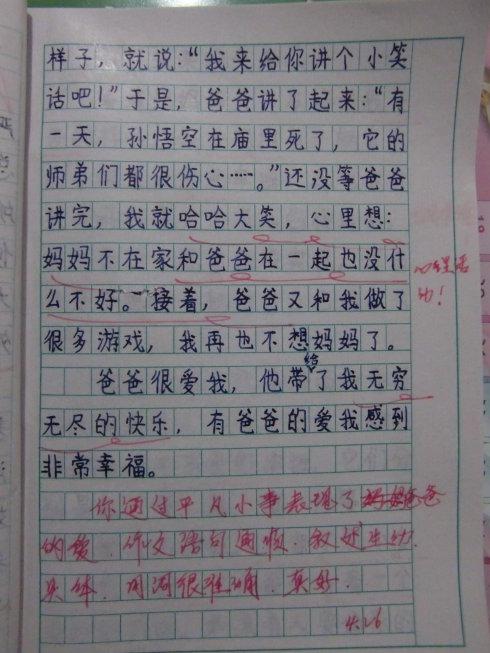 样子，就说：“我来给你讲个小笑
话吧！”于是，爸爸讲了起来：“有
一天，孙悟空在庙里死了，它的
师弟们都很伤心……。”还没等爸爸
讲完，我就哈哈大笑，心里想：
妈妈不在家和爸爸在一起也没什
么不好。接着，爸爸又和我做了
很多游戏，我再也不想妈妈了。
爸爸很爱我，他带给了我无穷
无尽的快乐，有爸爸的爱我感到
非常幸福。
心里话
的！
你通过平凡小事表现了爸爸
的爱．作文语句通顺．叙述生动．
具体．用词很准确．真好．
4.26